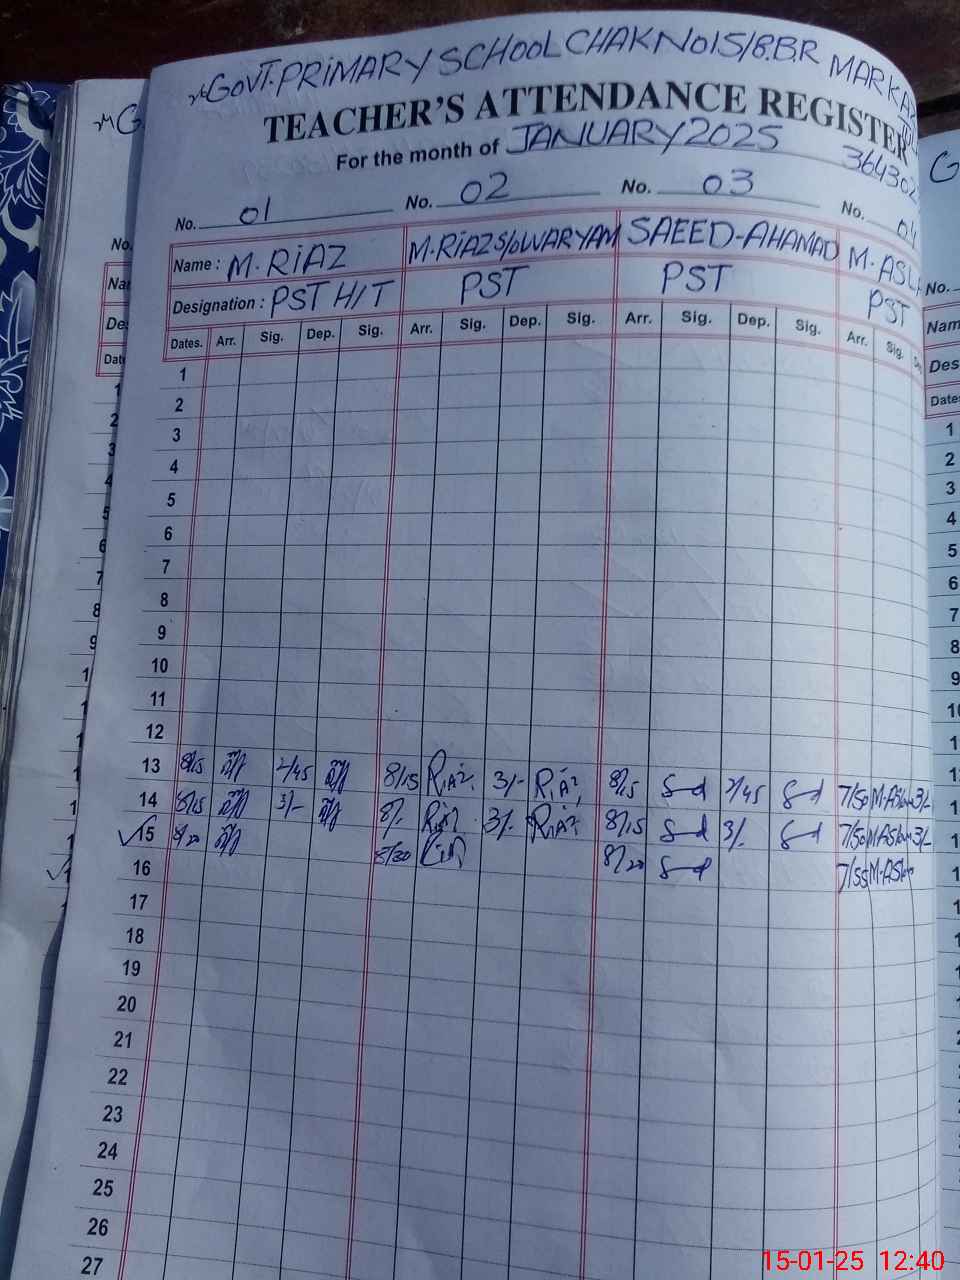 GOVT. PRIMARY SCHOOL CHAK NO 15/8.BR MARKAZ
TEACHER'S ATTENDANCE REGISTER
For the month of JANUARY 2025
No. 01 No. 02 No. 03 No. 04
Name : M. RIAZ M. RIAZ S/o WARYAM SAEED-AHAMAD M. ASL
Designation : PST H/T PST PST PST
Dates. Arr. Sig. Dep. Sig. Arr. Sig. Dep. Sig. Arr. Sig. Dep. Sig. Arr. Sig.
1
2
3
4
5
6
7
8
9
10
11
12
13 8/15 2/45 8/15 RiAZ 3/- RiAZ 8/15 Sd 2/45 Sd 7/50 M.Aslam 3/-
14 8/15 3/- 8/- RiAZ 3/- RiAZ 8/15 Sd 3/- Sd 7/50 M.Aslam 3/-
15 8/20 8/30 8/20 Sd 7/55 M.Aslam
16
17
18
19
20
21
22
23
24
25
26
27
No.
Nar
De
Dat
No.
Nam
Des
Dates
1
2
3
4
5
6
7
8
9
15-01-25 12:40